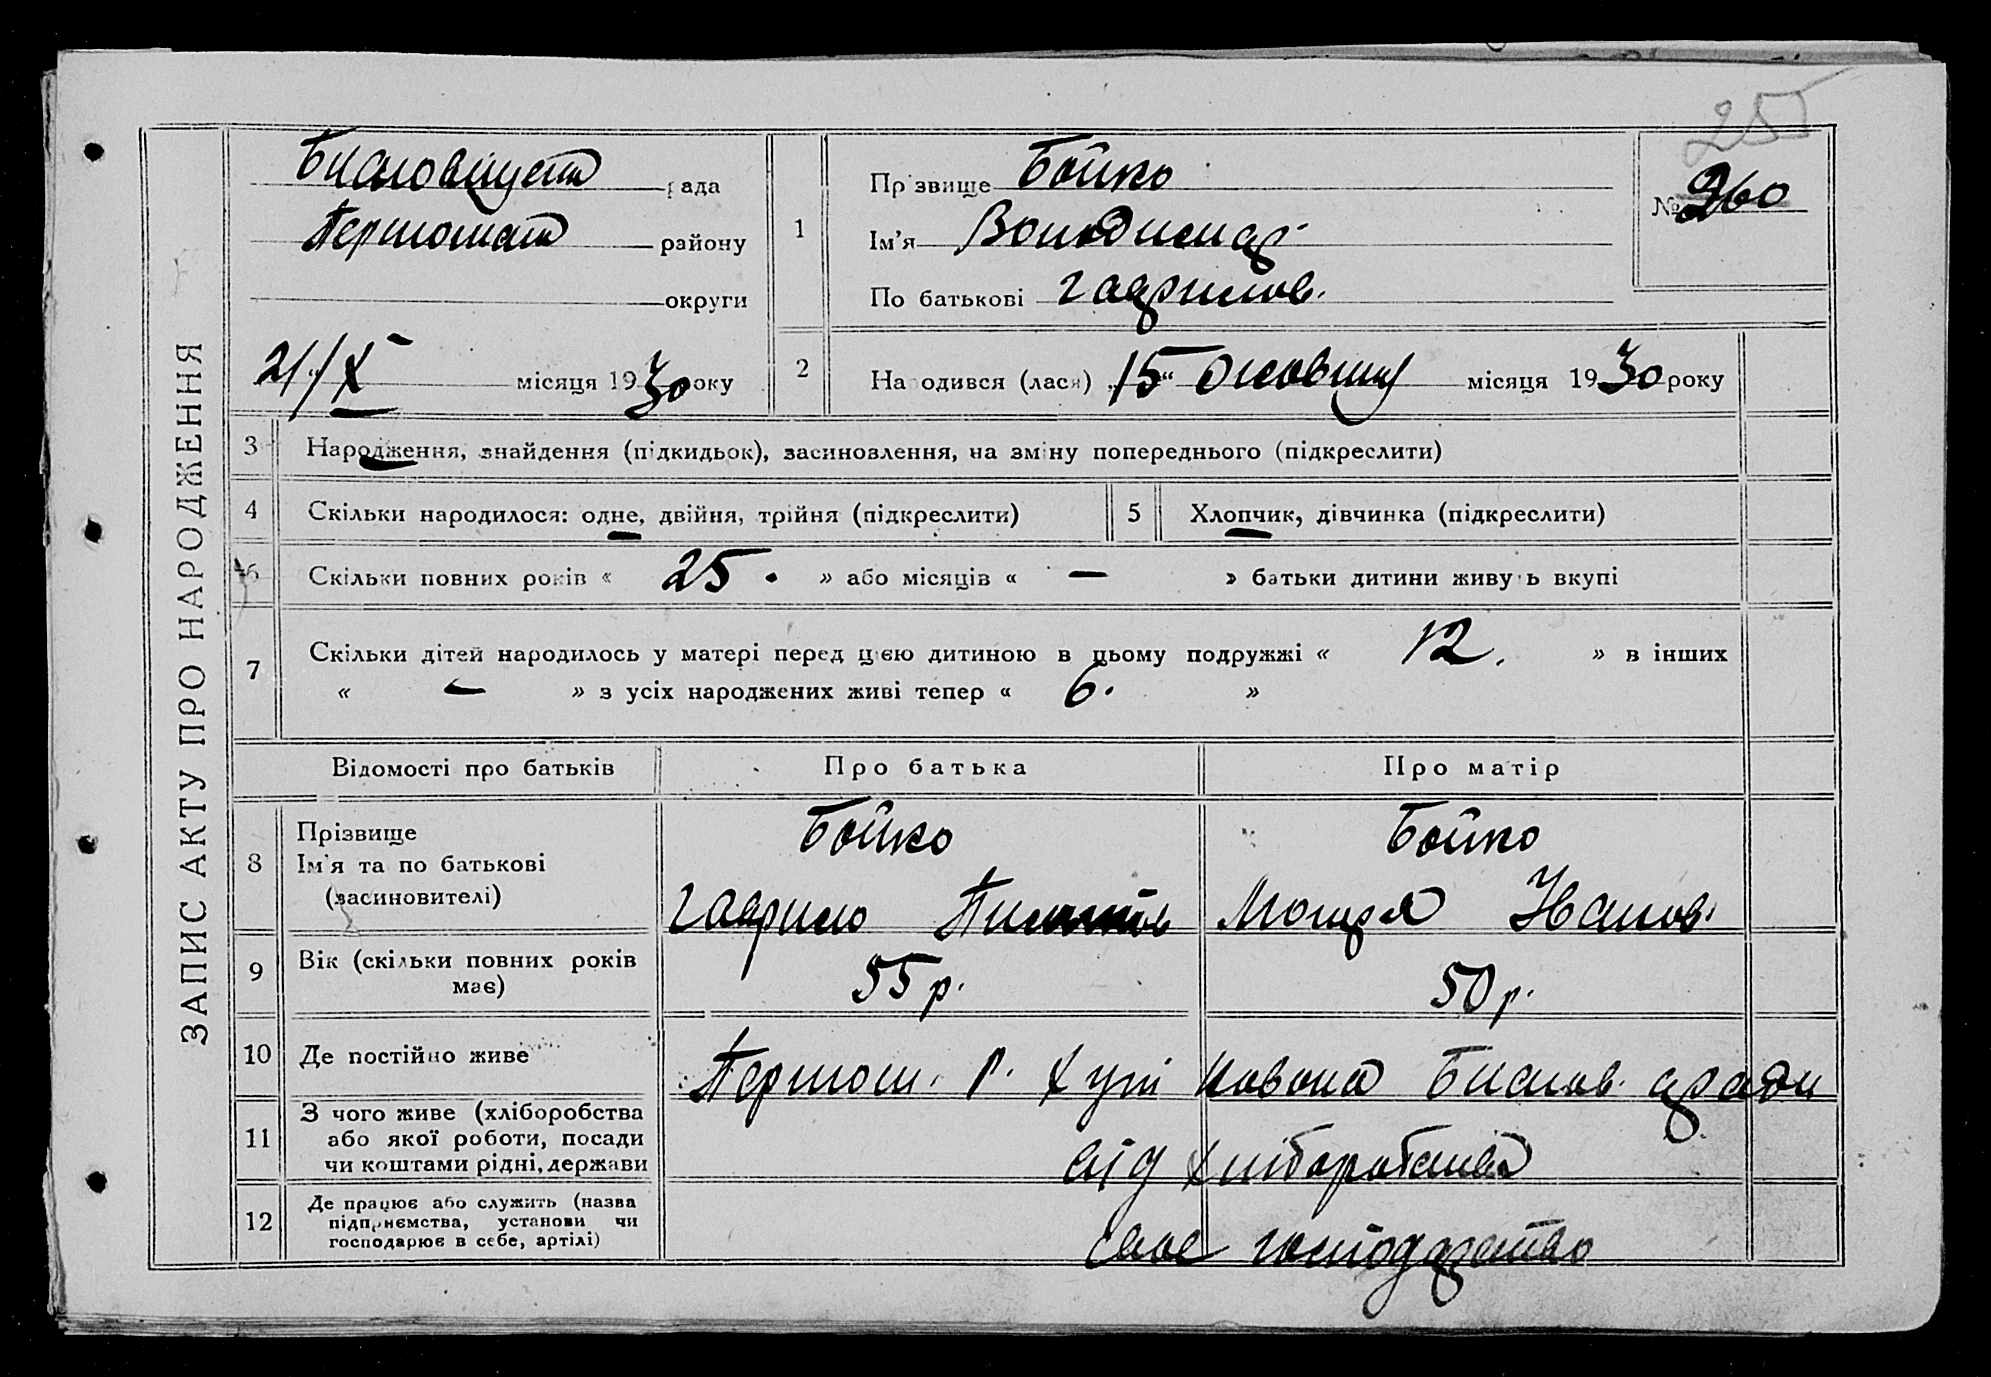 255
ЗАПИС АКТУ ПРО НАРОДЖЕННЯ
рада
району
округи
21/X місяця 1930 року
1
Прізвище Бойко
Ім'я Володимир
По батькові Гаврилов.
№ 260
2
Народився (лася) „15“ Жовтня місяця 1930 року
3 Народження, знайдення (підкидьок), засиновлення, на зміну попереднього (підкреслити)
4 Скільки народилося: одне, двійня, трійня (підкреслити)
5 Хлопчик, дівчинка (підкреслити)
6 Скільки повних років « 25. » або місяців « — » батьки дитини живуть вкупі
7 Скільки дітей народилось у матері перед цією дитиною в цьому подружжі « 12. » в інших
« — » з усіх народжених живі тепер « 6. »
Відомості про батьків
Про батька
Про матір
8 Прізвище
Ім'я та по батькові
(засиновителі)
Бойко
Гаврило
Бойко
Мотря Іванов.
9 Вік (скільки повних років
має)
55 р.
50 р.
10 Де постійно живе
Першом. р. хут ради
11 З чого живе (хліборобства
або якої роботи, посади
чи коштами рідні, держави
від хліборобства
12 Де працює або служить (назва
підприємства, установи чи
господарює в себе, артілі)
своє господарство